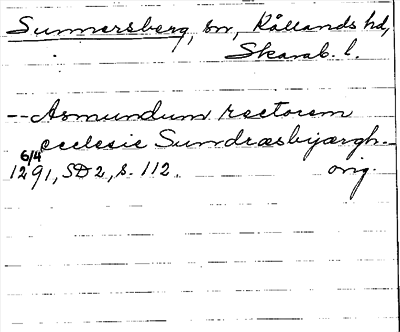 Sunnersberg, sn, Kållands hd,
Skarab. l.
-- Asmundum rectorem
ecclesie Sundræsbyærgh. --
6/4
1291, SD 2, s. 112. orig.